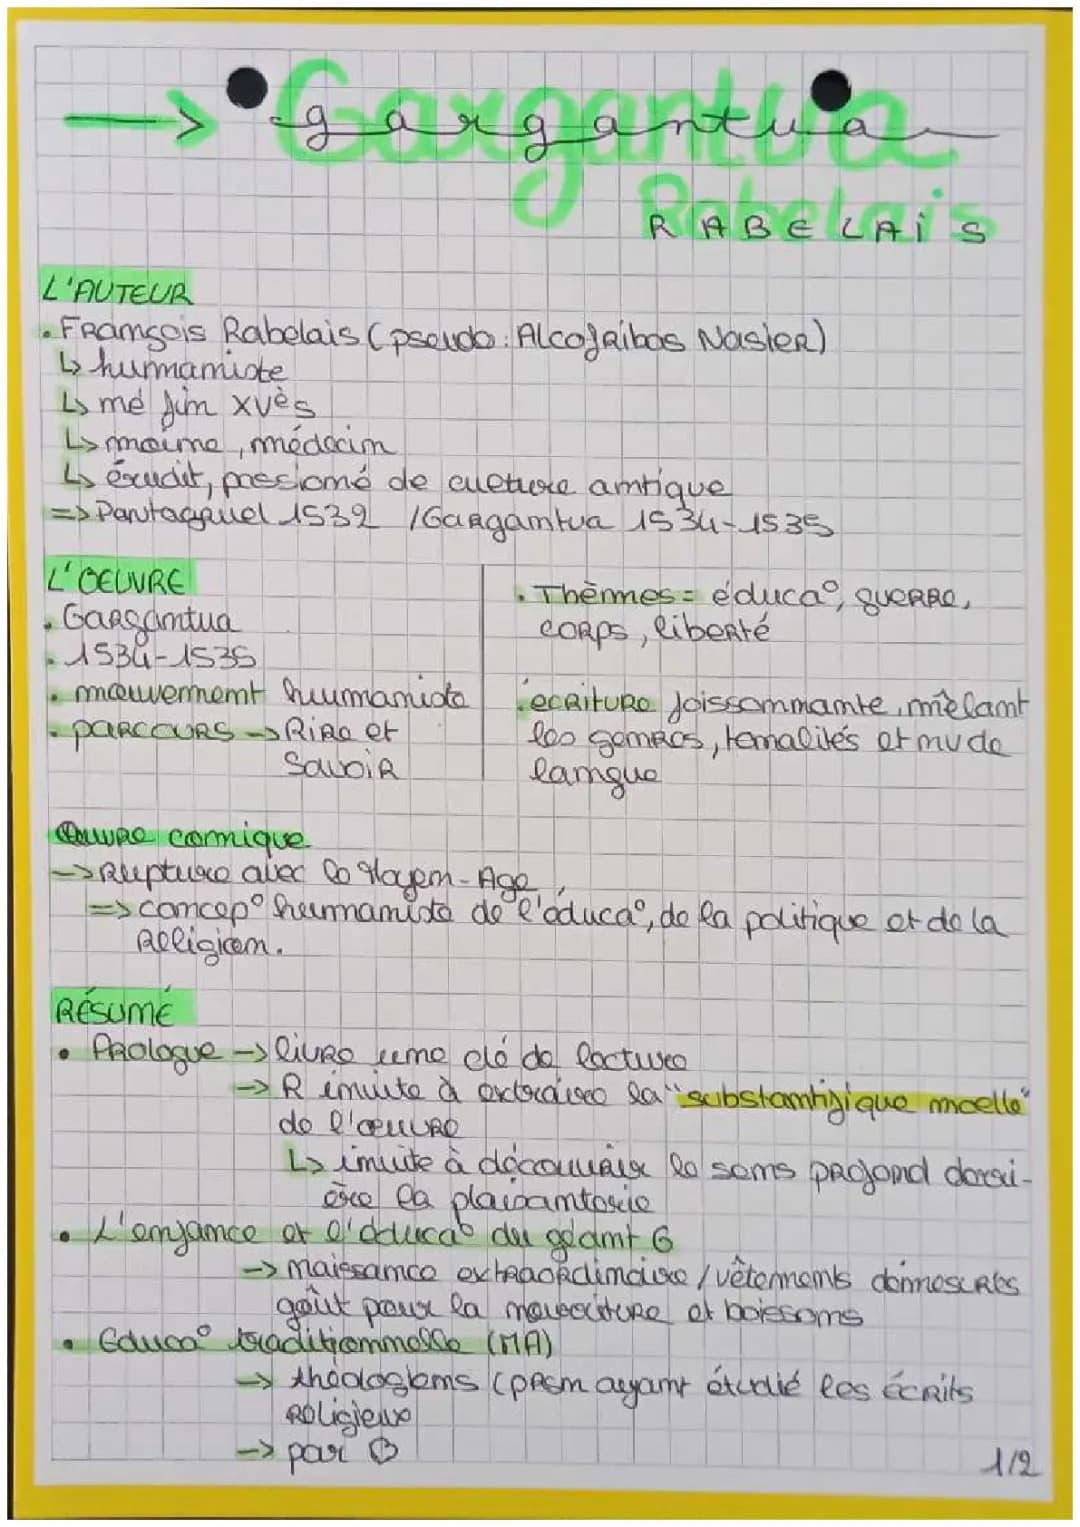 → Gargantua
RABELAIS
L'AUTEUR
• François Rabelais (pseudo : Alcofribas Nasier)
↳ humaniste
↳ né fin XVès
↳ moine, médecin
↳ érudit, passioné de culture antique
=> Pantagruel 1532 / Gargantua 1534-1535
L'OEUVRE
• Gargantua
• 1534-1535
• mouvement humaniste
• parcours → Rire et
Savoir
• Thèmes = éduca°, guerre,
corps, liberté
• ecriture foissonnante, mêlant
les genres, tonalités et nv de
langue
Œuvre comique
→ Rupture avec le Moyen-Age
=> concep° humaniste de l'éduca°, de la politique et de la
Religion.
RÉSUMÉ
• Prologue → livre une clé de lecture
→ R invite à extraire la "substantifique moelle"
de l'œuvre
↳ invite à découvrir le sens profond derri-
ère la plaisanterie
• L'enfance et l'éduca° du géant G
→ naissance extraordinaire / vêtements démesurés
goût pour la nourriture et boissons
• Educa° traditionnelle (MA)
→ théologiens (prsn ayant étudié les écrits
religieux
→ par ♡
1/2